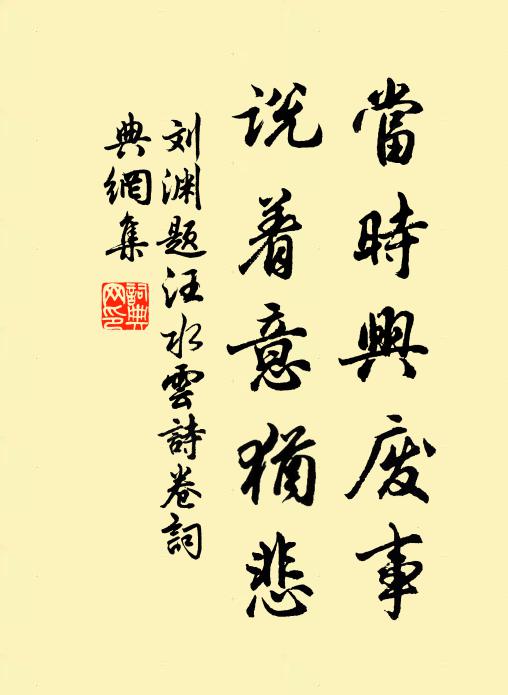 當時興废事
説着意猶悲
刘渊题汪水雲詩卷詞
典網集
詞典
网印